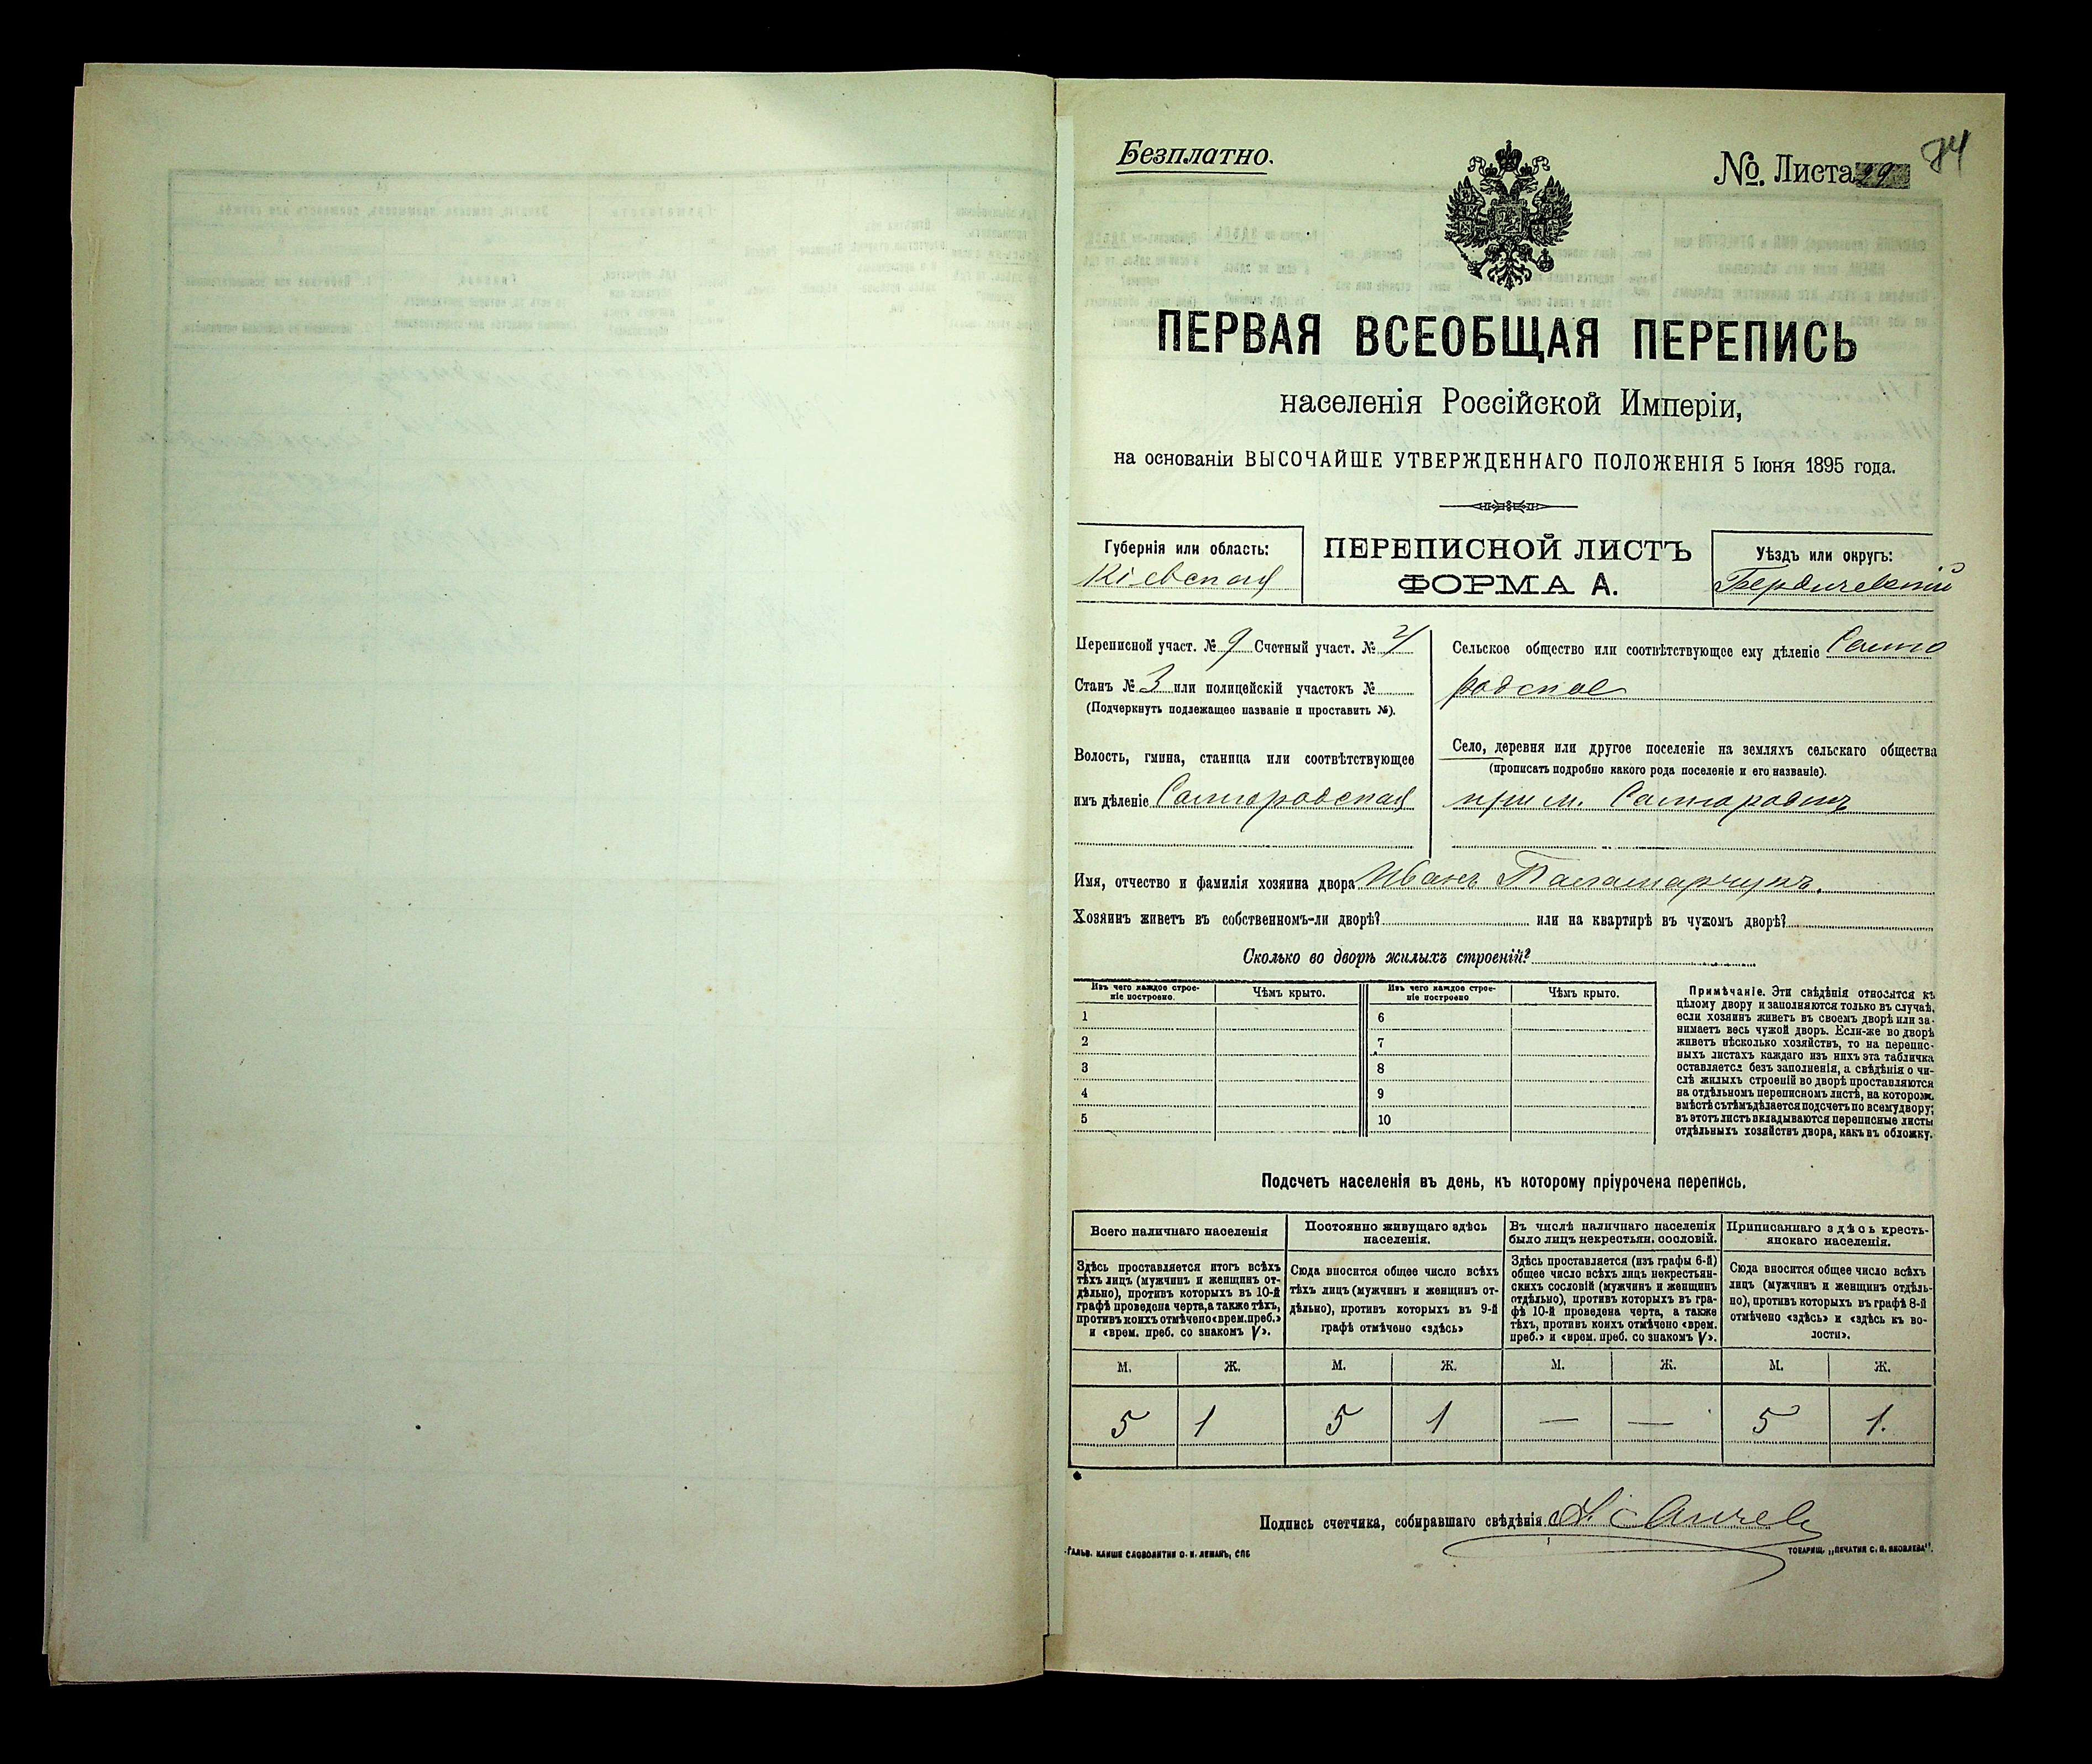 Безплатно.
№. Листа 29
74
ПЕРВАЯ ВСЕОБЩАЯ ПЕРЕПИСЬ
населенія Россійской Имперіи,
на основаніи ВЫСОЧАЙШЕ УТВЕРЖДЕННАГО ПОЛОЖЕНІЯ 5 Іюня 1895 года.
Губернія или область:
Кіевская
ПЕРЕПИСНОЙ ЛИСТЪ
ФОРМА А.
Уѣздъ или округъ:
Бердичевскій
Переписной участ. № 9 Счетный участ. № 4
Станъ № 3 или полицейскій участокъ №
(Подчеркнуть подлежащее названіе и проставить №).
Волость, гмина, станица или соотвѣтствующее
имъ дѣленіе Самгородская
Сельское общество или соотвѣтствующее ему дѣленіе Самго
родское
Село, деревня или другое поселеніе на земляхъ сельскаго общества
(прописать подробно какого рода поселеніе и его названіе).
при м. Самгородкъ
Имя, отчество и фамилія хозяина двора Иванъ Паламарчукъ.
Хозяинъ живетъ въ собственномъ-ли дворѣ? или на квартирѣ въ чужомъ дворѣ?
Сколько во дворѣ жилыхъ строеній?
Изъ чего каждое строе-
ніе построено.
Чѣмъ крыто.
Изъ чего каждое строе-
ніе построено
Чѣмъ крыто.
1
2
3
4
5
6
7
8
9
10
Примѣчаніе. Эти свѣдѣнія относятся къ
цѣлому двору и заполняются только въ случаѣ,
если хозяинъ живетъ въ своемъ дворѣ или за-
нимаетъ весь чужой дворъ. Если-же во дворѣ
живетъ нѣсколько хозяйствъ, то на перепис-
ныхъ листахъ каждаго изъ нихъ эта табличка
оставляется безъ заполненія, а свѣдѣнія о чи-
слѣ жилыхъ строеній во дворѣ проставляются
на отдѣльномъ переписномъ листѣ, на которомъ
вмѣстѣ съ тѣмъ дѣлается подсчетъ по всему двору;
въ этотъ листъ вкладываются переписные листы
отдѣльныхъ хозяйствъ двора, какъ въ обложку.
Подсчетъ населенія въ день, къ которому пріурочена перепись.
Всего наличнаго населенія
Постоянно живущаго здѣсь
населенія.
Въ числѣ наличнаго населенія
было лицъ некрестьян. сословій.
Приписаннаго здѣсь кресть-
янскаго населенія.
Здѣсь проставляется итогъ всѣхъ
тѣхъ лицъ (мужчинъ и женщинъ от-
дѣльно), противъ которыхъ въ 10-й
графѣ проведена черта, а также тѣхъ,
противъ коихъ отмѣчено «врем. преб.»
и «врем. преб. со знакомъ V».
Сюда вносится общее число всѣхъ
тѣхъ лицъ (мужчинъ и женщинъ от-
дѣльно), противъ которыхъ въ 9-й
графѣ отмѣчено «здѣсь»
Здѣсь проставляется (изъ графы 6-й)
общее число всѣхъ лицъ некрестьян-
скихъ сословій (мужчинъ и женщинъ
отдѣльно), противъ которыхъ въ гра-
фѣ 10-й проведена черта, а также
тѣхъ, противъ коихъ отмѣчено «врем.
преб.» и «врем. преб. со знакомъ V».
Сюда вносится общее число всѣхъ
лицъ (мужчинъ и женщинъ отдѣль-
но), противъ которыхъ въ графѣ 8-й
отмѣчено «здѣсь» и «здѣсь къ во-
лости».
М. Ж. М. Ж. М. Ж. М. Ж.
5 1 5 1 — — 5 1.
Подпись счетчика, собиравшаго свѣдѣнія
ГАЛЬВ. КЛИШЕ СЛОВОЛИТНИ О. И. ЛЕМАНЪ, СПБ
ТОВАРИЩ. „ПЕЧАТНЯ С. П. ЯКОВЛЕВА".